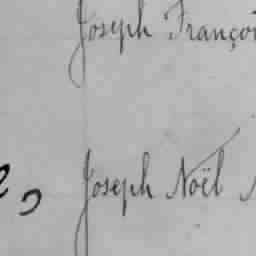 Joseph Françoi
Joseph Noël